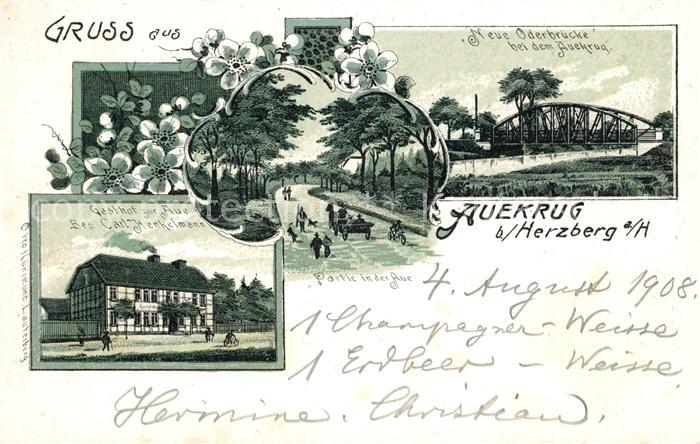 GRUSS aus
„Neue Oderbrücke"
bei dem Auekrug.
Gasthof zur Aue
Bes. Carl Henkelmann
Partie in der Aue
AUEKRUG
b/Herzberg a/H
4. August 1908.
1 Champagner-Weisse
1 Erdbeer - Weisse.
Hermine. Christian.